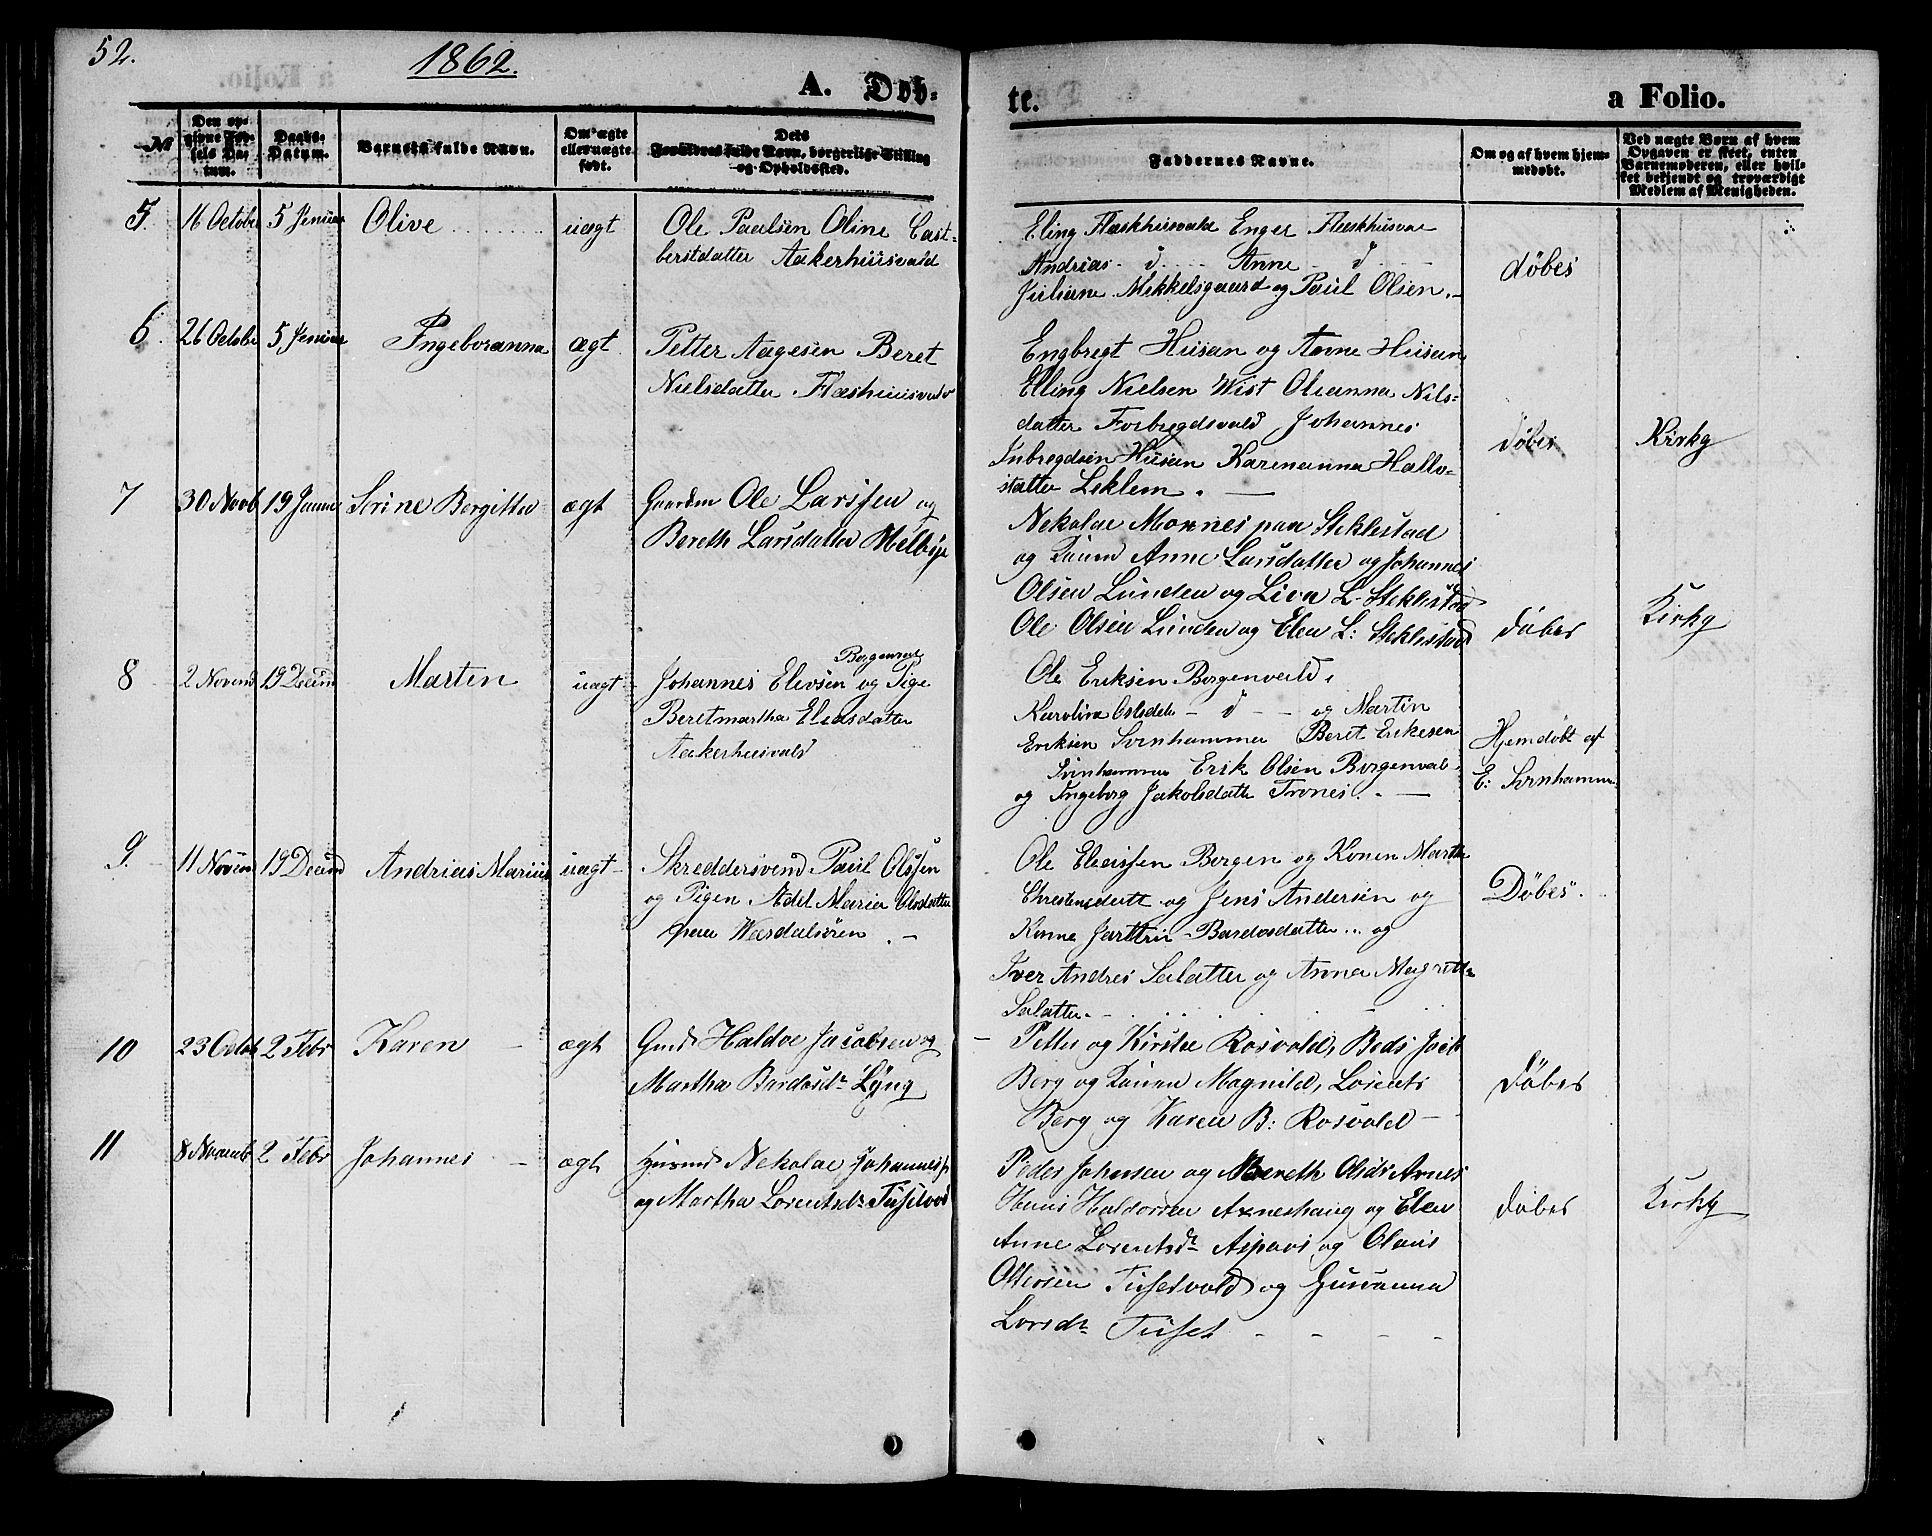 52.
1862.
A. Døb-
te.
a Folio.
№
Den op-
givne Fød-
sels Da-
tum.
Daabs-
Datum.
Barnets fulde Navn.
Om ægte
eller uægte
født.
Dets
Forældres fulde Navn, borgerlige Stilling
og Opholdssted.
Faddernes Navne.
Om og af hvem hjem-
medøbt.
Ved uægte Børn af hvem
Opgaven er skeet, enten
Barnemoderen, eller hvil-
ket bekjendt og troværdigt
Medlem af Menigheden.
5.
16 Octobe
5 Jenuar
Olive
uægt
Ole Paulsen Oline
berstdatter Aakerhuusvald
Eling Enger
Andrias d Anne d
Juliane Mikkelsgaard og Paul Olsen.
døbes
6.
26 Octobe
5 Jenuar
Ingeboranna
ægt
Petter Aagesen Beret
Nielsdatter
Engbregt Husan og Anne Husan
Elling Nielsen Wist Oleanna Nils-
datter Forbregdsvald Johannes
Inbregdsen Husan Karenanna Hallo-
statter Leklem.
døbes
Kirkg
7
30 Novb
19 Janua
Serine Bergitta
ægt
Gaardm Ole Larssen og
Bereth Larsdatter Melbye
Nekolae Monnes paa Steklestad
og Anne Larsdatter og Johannes
Olsen Lunden og Liva L. Steklestad
Ole Olsen Lunden og Elen L: Steklestad
døbes
Kirkg
8
2 Novemb
19 Decem
Martin
uægt
Borgenvald
Johannes Elevsen og Pige
Beretmartha Eliasdatter
Aakerhusvald
Ole Eriksen Borgenvald,
Karolina Olsdatr d og Martin
Eriksen Svinhammer Beret Erikesen
Svinhammer Erik Olsen Borgenval
og Ingeborg Jakobsdatter Trones.
Hjemdøbt af
E: Svinhamme
9.
11 Novem
19 Decemb
Andrias Marius
uægt
Skreddersvend Paul Olssen
og Pigen Adel Maria Olsdatter
paa Wasdalsøren.
Ole Eleassen Borgen og Konen Marth
Chrestensdatt og Jens Andersen og
Kone Bardosdatter og
Iver Andres Salatter og Anna Magrett
Salatter.
Døbes.
10
23 Octob
2 Febr
Karen
ægt
Gmd Haldoe Jacobsen og
Martha Bardosdr Lyng
Petter og Kirstee Rosvold,
Berg og Magnild, Lorents
Berg og Karen B: Rosvold
døbes
11
8 Novemb
2 Febr
Johannes
ægt
Husmd Nekolae Johannes
og Martha Lorentsdr Tusetvold
Peder Johnsen og Bereth Olsdr Aunes
Haldorsen Axneshaug og Elen
Anne Lorentsdr Aspaas og Olaus
Ottersen Tusetvold og Gurianna
Larsdr Tuset
døbes
Kirkg